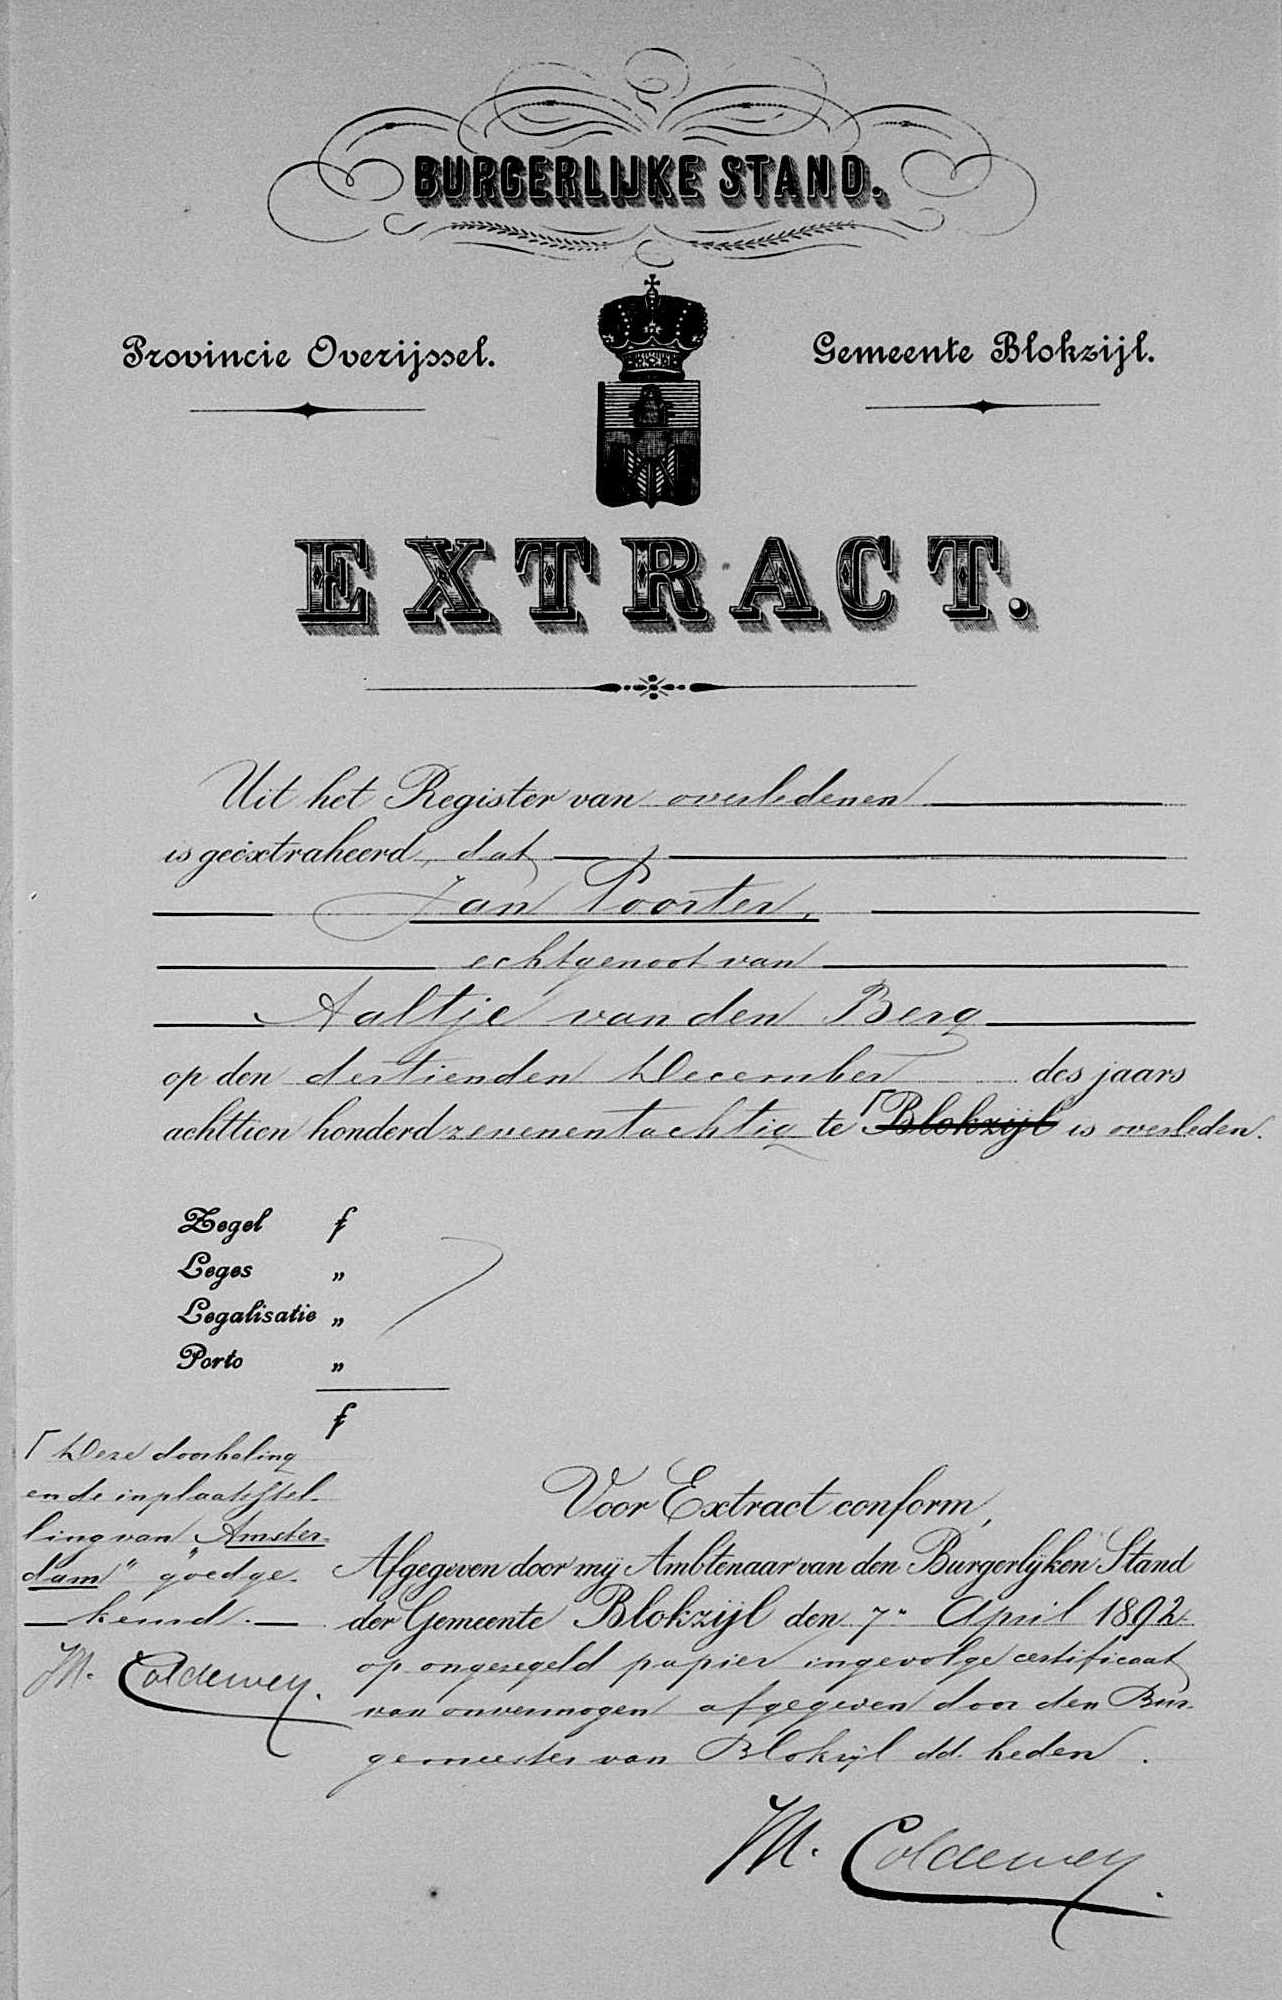 BURGERLIJKE STAND.
Provincie Overijssel.
Gemeente Blokzijl.
EXTRACT.
Uit het Register van overledenen
is geëxtraheerd, dat
Jan Poorter,
echtgenoot van
Aaltje van den Berg
op den dertienden December des jaars
achttien honderd zevenentachtig te ⌈Blokzijl is overleden.
Zegel f
Leges „
Legalisatie „
Porto „
f
⌈ Deze doorhaling
en de inplaatsstel-
ling van „Amster-
dam" goedge-
keurd.
M. Coldewey.
Voor Extract conform,
Afgegeven door mij Ambtenaar van den Burgerlijken Stand
der Gemeente Blokzijl den 7n April 1892
op ongezegeld papier ingevolge certificaat
van onvermogen afgegeven door den Bur-
gemeester van Blokzijl dd. heden.
M. Coldewey.